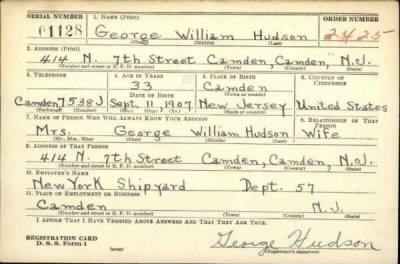 SERIAL NUMBER 1. NAME (Print) ORDER NUMBER
C1128 George William Hudson 2425
(First) (Middle) (Last)
2. ADDRESS (Print)
414 N. 7th Street Camden, Camden, N.J.
(Number and street or R. F. D. number) (Town) (County) (State)
3. TELEPHONE 4. AGE IN YEARS 5. PLACE OF BIRTH 6. COUNTRY OF CITIZENSHIP
33 Camden
DATE OF BIRTH (Town or county)
Camden 7538J Sept. 11, 1907 New Jersey United States
(Exchange) (Number) (Mo.) (Day) (Yr.) (State or country)
7. NAME OF PERSON WHO WILL ALWAYS KNOW YOUR ADDRESS 8. RELATIONSHIP OF THAT PERSON
Mrs. George William Hudson Wife
(Mr., Mrs., Miss) (First) (Middle) (Last)
9. ADDRESS OF THAT PERSON
414 N. 7th Street Camden, Camden, N.J.
(Number and street or R. F. D. number) (Town) (County) (State)
10. EMPLOYER'S NAME
New York Shipyard Dept. 57
11. PLACE OF EMPLOYMENT OR BUSINESS
Camden N.J.
(Number and street or R. F. D. number) (Town) (County) (State)
I AFFIRM THAT I HAVE VERIFIED ABOVE ANSWERS AND THAT THEY ARE TRUE.
REGISTRATION CARD George Hudson
D. S. S. Form 1 (over) (Registrant's signature)